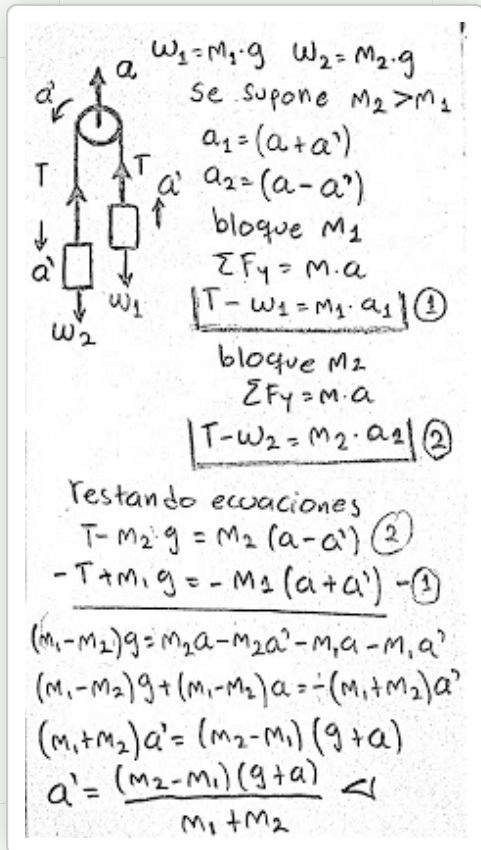 W₁=M₁·g W₂=M₂·g
Se supone M₂>M₁
a₁=(a+a')
a₂=(a-a')
bloque M₁
ΣFy=M.a
T-W₁=M₁·a₁ ①
bloque M₂
ΣFy=M.a
T-W₂=M₂·a₂ ②
a
a'
T
T
a'
a'
W₁
W₂
restando ecuaciones
T-M₂·g=M₂(a-a') ②
-T+M₁g=-M₁(a+a') -①
(m₁-M₂)g=M₂a-M₂a'-M₁a-M₁a'
(M₁-M₂)g+(M₁-M₂)a=-(M₁+M₂)a'
(M₁+M₂)a'=(M₂-M₁)(g+a)
a'=(M₂-M₁)(g+a)
M₁+M₂